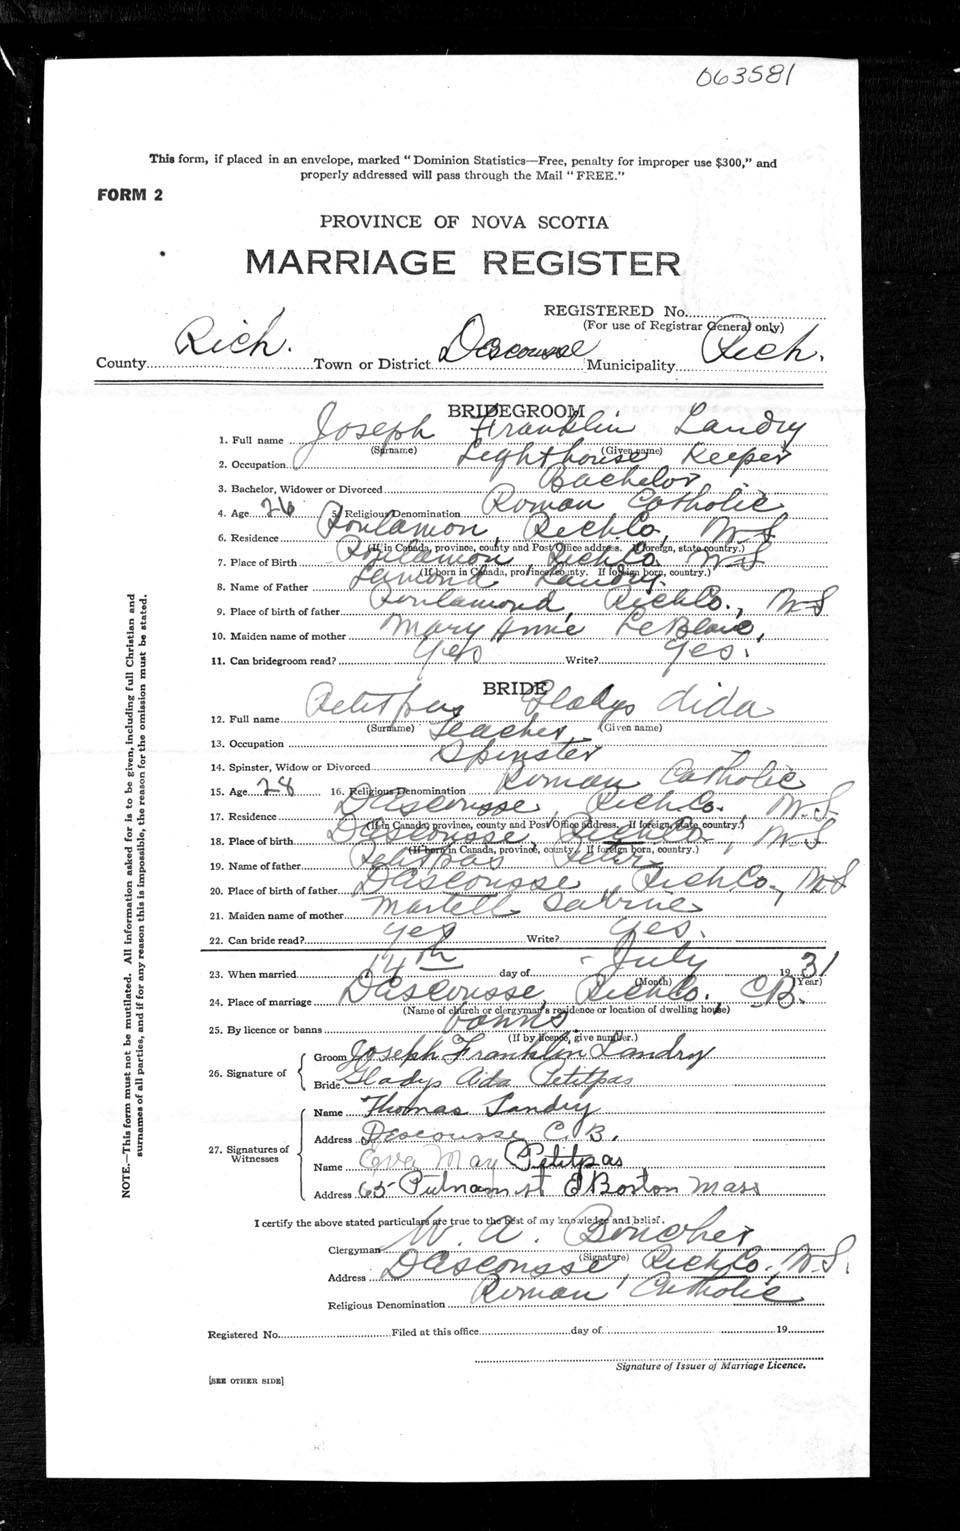 063581
This form, if placed in an envelope, marked "Dominion Statistics—Free, penalty for improper use $300," and
properly addressed will pass through the Mail "FREE."
FORM 2
PROVINCE OF NOVA SCOTIA
MARRIAGE REGISTER
REGISTERED No.
(For use of Registrar General only)
County Rich. Town or District Descousse Municipality Rich.
BRIDEGROOM
1. Full name Joseph Franklin Landry
(Surname) (Given name)
2. Occupation Lighthouse Keeper
3. Bachelor, Widower or Divorced Bachelor
4. Age 26 5. Religious Denomination Roman Catholic
6. Residence Poulamon, Rich Co., N S
(If in Canada, province, county and Post Office address. If foreign, state country.)
7. Place of Birth Poulamon Rich Co. N S
(If born in Canada, province, county. If foreign born, country.)
8. Name of Father Landry
9. Place of birth of father Poulamond, Rich Co., N S
10. Maiden name of mother Mary Annie LeBlanc,
11. Can bridegroom read? yes Write? yes.
BRIDE
12. Full name Petitpas Gladys Aida
(Surname) (Given name)
13. Occupation Teacher
14. Spinster, Widow or Divorced Spinster
15. Age 28 16. Religious Denomination Roman Catholic
17. Residence Dascousse, Rich Co. N S
(If in Canada, province, county and Post Office address. If foreign, state country.)
18. Place of birth Dascousse, Rich Co, N S
(If born in Canada, province, county. If foreign born, country.)
19. Name of father Petitpas Peter
20. Place of birth of father Dascousse, Rich Co., N S
21. Maiden name of mother Martell Sabine
22. Can bride read? yes Write? Yes.
23. When married 14th day of July 1931
(Month) (Year)
24. Place of marriage Dascousse, Rich Co., C B.
(Name of church or clergyman's residence or location of dwelling house)
25. By licence or banns banns.
(If by licence, give number.)
26. Signature of
Groom Joseph Franklin Landry
Bride Gladys Aida Petitpas
27. Signatures of Witnesses
Name Thomas Landry
Address Descousse C. B.
Name Eva May Petitpas
Address 65 Putnam st E Boston Mass
I certify the above stated particulars are true to the best of my knowledge and belief.
Clergyman W. A. Boucher
(Signature)
Address Dascousse, Rich Co., N. S.
Religious Denomination Roman Catholic
Registered No. Filed at this office day of 19
Signature of Issuer of Marriage Licence.
[SEE OTHER SIDE]
NOTE.—This form must not be mutilated. All information asked for is to be given, including full Christian and
surnames of all parties, and if for any reason this is impossible, the reason for the omission must be stated.